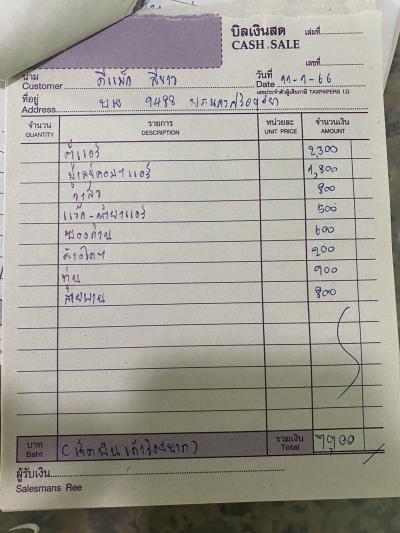 บิลเงินสด เล่มที่
CASH SALE
เลขที่
นาม
Customer ดีแม็ก สีขาว วันที่ Date 11-7-66
ที่อยู่ เลขประจำตัวผู้เสียภาษี TAXPAPERS I.D.
Address บพ 9488 พระนครศรีอยุธยา
จำนวน รายการ หน่วยละ จำนวนเงิน
QUANTITY DESCRIPTION UNIT PRICE AMOUNT
ตู้แอร์ 2,300
มู่เลย์คอมฯแอร์ 1,800
วาล์ว 800
แว๊ก-น้ำยาแอร์ 500
600
ล้างไดฯ 200
900
สายพาน 800
บาท (เจ็ดพันเก้าร้อยบาท) รวมเงิน 7900
Baht Total
ผู้รับเงิน
Salesmans Ree